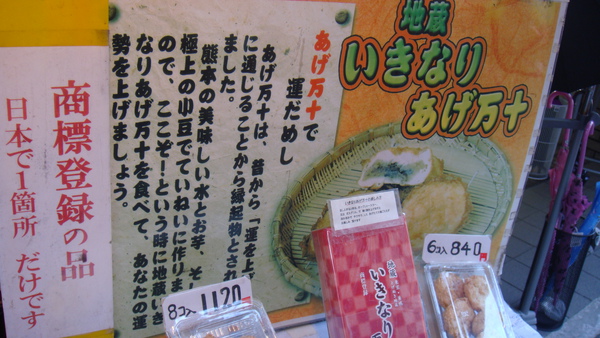 地蔵
いきなり
あげ万十
あげ万十で
運だめし
あげ万十は、昔から「運を上
に通じることから縁起物とされ
ました。
熊本の美味しい水とお芋、そし
極上の小豆でていねいに作りま
ので、ここぞ!という時に地蔵いき
なりあげ万十を食べて、あなたの運
勢を上げましょう。
商標登録の品
日本で1箇所だけです
8コ入 1120
6コ入 840
地蔵
いきなり